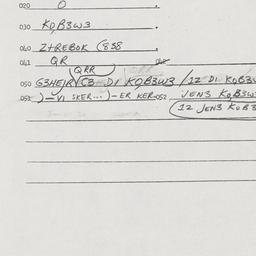 020 O
030 KOB3W3
040 Z+REBOK (838
041 QR
QRR
050 G3HEIR C3 DI KOB3W3 / 12 DI KOB3W
051 )-VI SKER...)-ER KER 052 JEN3 KOB3W
12 JEN3 KOB3